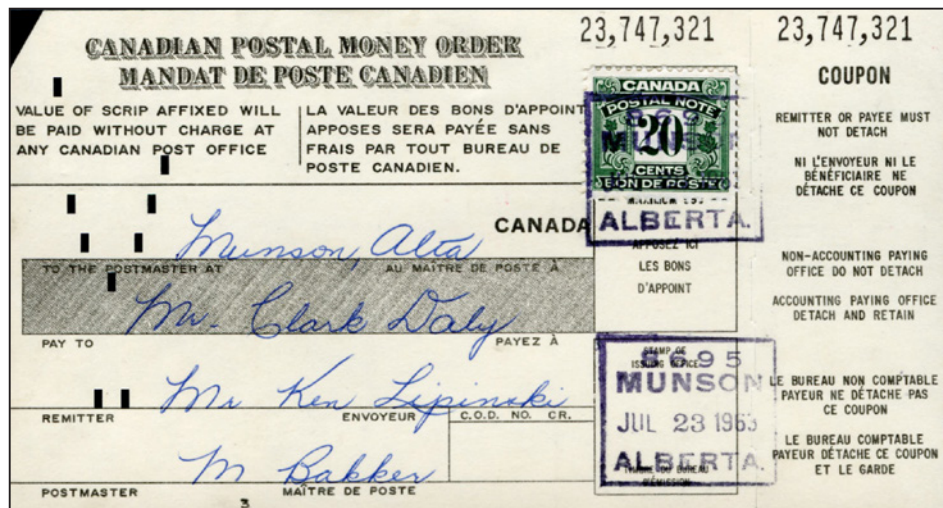 23,747,321
23,747,321
CANADIAN POSTAL MONEY ORDER
MANDAT DE POSTE CANADIEN
VALUE OF SCRIP AFFIXED WILL
BE PAID WITHOUT CHARGE AT
ANY CANADIAN POST OFFICE
LA VALEUR DES BONS D'APPOINT
APPOSES SERA PAYÉE SANS
FRAIS PAR TOUT BUREAU DE
POSTE CANADIEN.
CANADA
POSTAL NOTE
20
CENTS
BON DE POSTE
8695
MUNSON
ALBERTA.
CANADA
APPOSEZ ICI
LES BONS
D'APPOINT
Munson, Alta
TO THE POSTMASTER AT
AU MAÎTRE DE POSTE À
Mr. Clark Daly
PAY TO
PAYEZ À
Mr Ken Lipinski
REMITTER
ENVOYEUR
C.O.D. NO. CR.
M Bakker
POSTMASTER
MAÎTRE DE POSTE
3
STAMP OF
ISSUING OFFICE
8695
MUNSON
JUL 23 1963
ALBERTA.
TIMBRE DU BUREAU
D'ÉMISSION
COUPON
REMITTER OR PAYEE MUST
NOT DETACH
NI L'ENVOYEUR NI LE
BÉNÉFICIAIRE NE
DÉTACHE CE COUPON
NON-ACCOUNTING PAYING
OFFICE DO NOT DETACH
ACCOUNTING PAYING OFFICE
DETACH AND RETAIN
LE BUREAU NON COMPTABLE
PAYEUR NE DÉTACHE PAS
CE COUPON
LE BUREAU COMPTABLE
PAYEUR DÉTACHE CE COUPON
ET LE GARDE